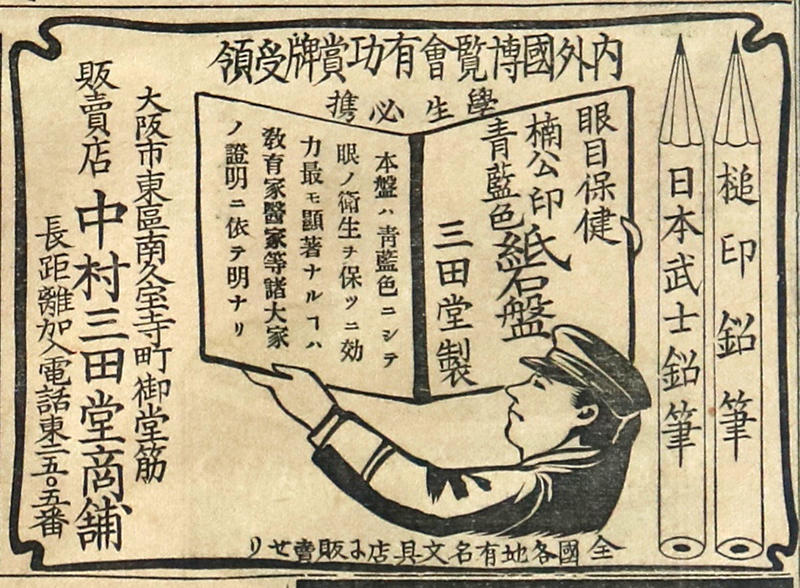 槌印鉛筆
日本武士鉛筆
内外國博覧會有功賞牌受領
學生必携
眼目保健
楠公印
青藍色紙石盤
三田堂製
本盤ハ青藍色ニシテ
眼ノ衛生ヲ保ツニ効
力最モ顯著ナルヿハ
敎育家醫家等諸大家
ノ證明ニ依テ明ナリ
全國各地有名文具店に販賣せり
大阪市東區南久宝寺町御堂筋
販賣店 中村三田堂商舗
長距離加入電話東二五〇五番